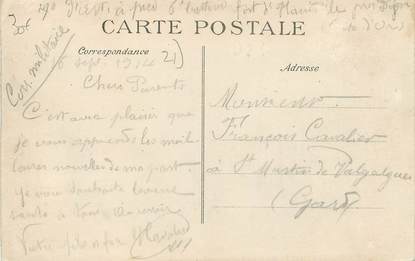 CARTE POSTALE
Correspondance
Adresse
Corr. militaire
6 sept. 1914
Chers Parents
C'est avec plaisir que
je vous apprends les meil-
leures nouvelles de ma part.
Je vous souhaite bonne
santé à tous. Au revoir
Votre fils
Cavalier
Monsieur
François Cavalier
à St Martin de Valgalgues
(Gard)